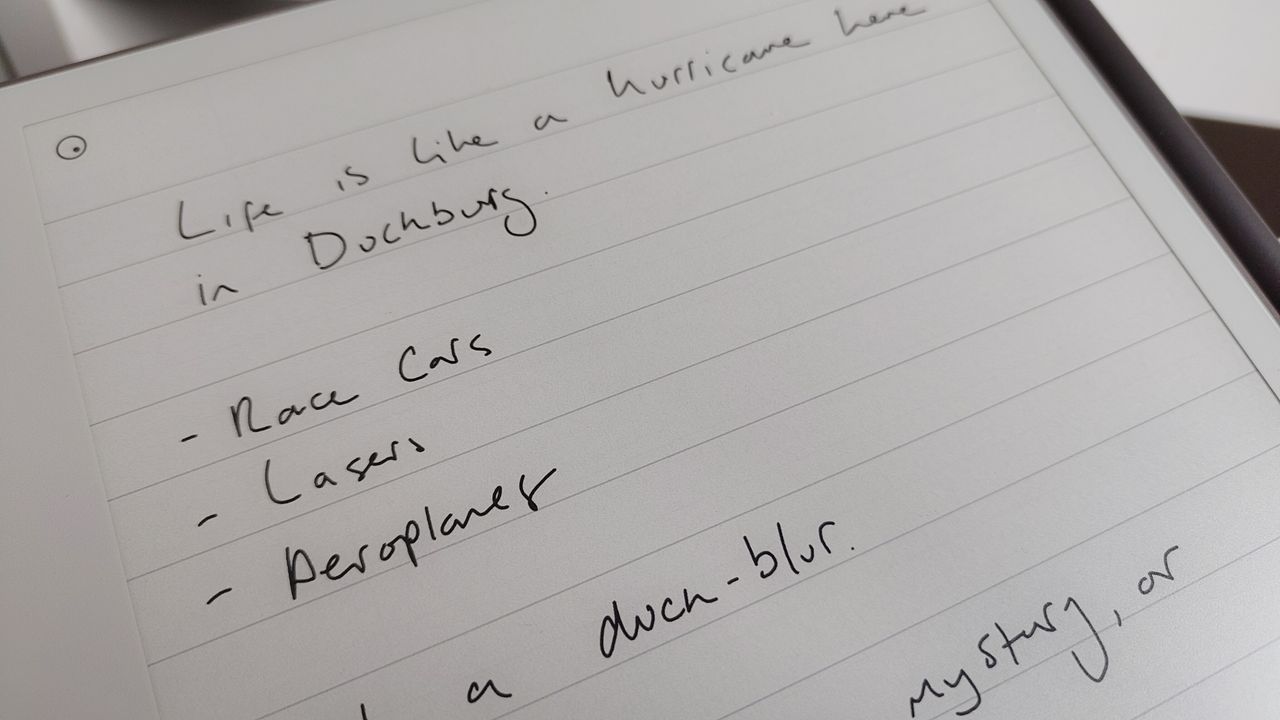 Life is like a hurricane here
in Duckburg.
- Race Cars
- Lasers
- Aeroplanes
a duck-blur.
mystery, or